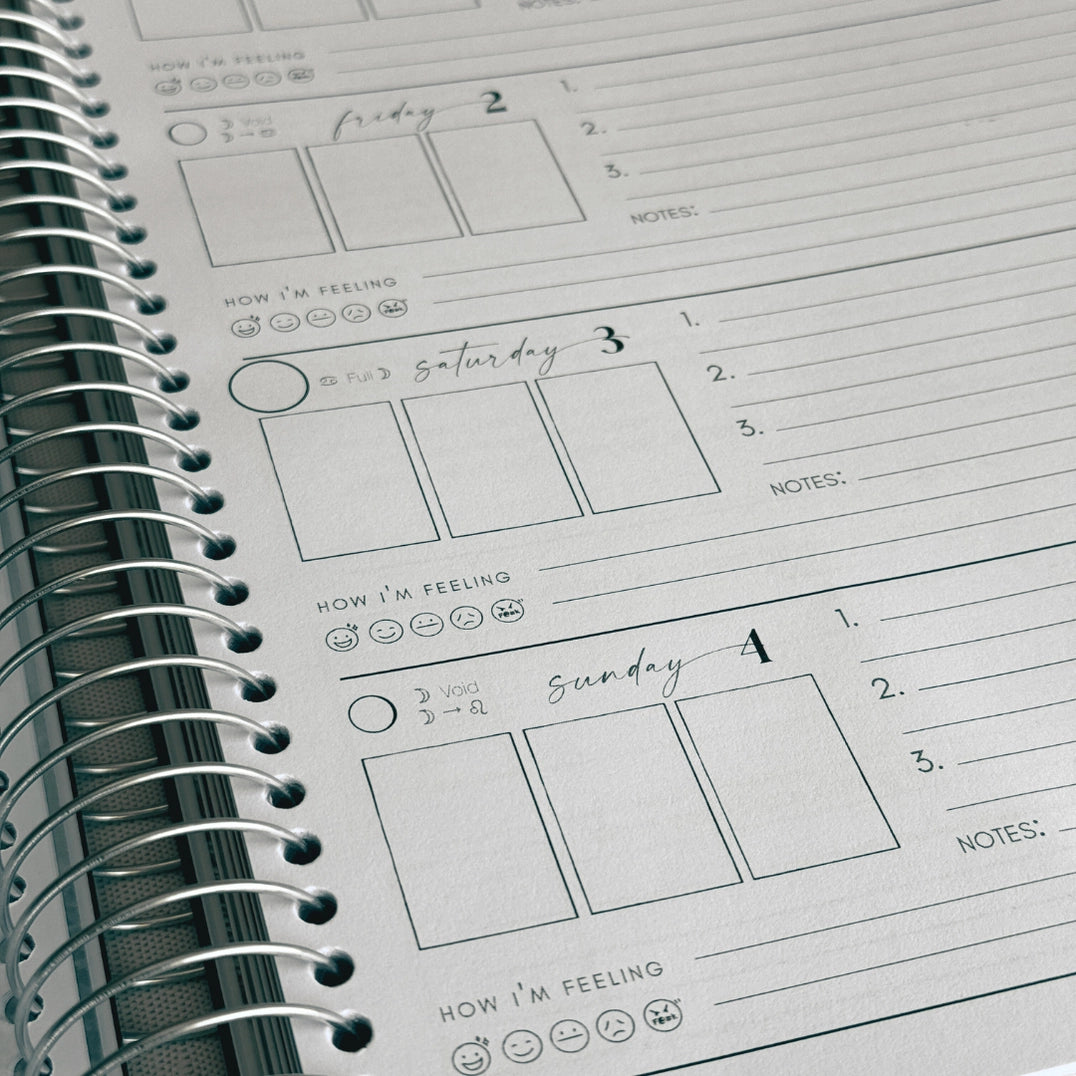 NOTES:
HOW I'M FEELING
☽ Void
☽ → ♋
friday 2
1.
2.
3.
NOTES:
HOW I'M FEELING
♋ Full ☽
saturday 3
1.
2.
3.
NOTES:
HOW I'M FEELING
☽ Void
☽ → ♌
sunday 4
1.
2.
3.
NOTES:
HOW I'M FEELING